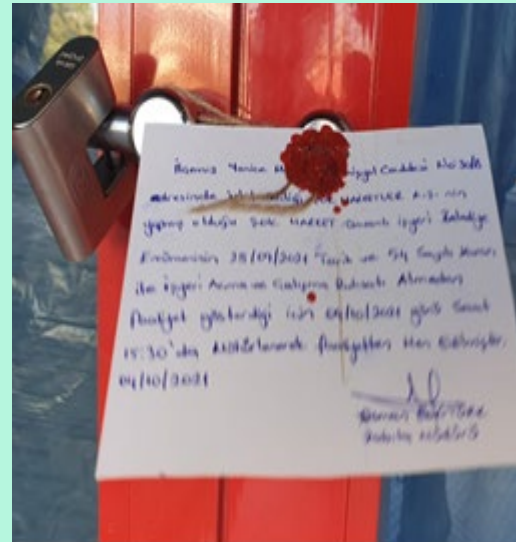 İlçemiz Yenice Caddesi No:
adresinde MARKETLER A.Ş. nin
yapmış olduğu ŞOK MARKET işyeri Belediye
Encümeninin 28/09/2021 Tarih ve 54 Sayılı Kararı
ile İşyeri Açma ve Çalışma Ruhsatı Almadan
Faaliyet gösterdiği için 04/10/2021 günü Saat
15:30'da Mühürlenerek Faaliyetten Men Edilmiştir.
04/10/2021
Zabıta Müdürü